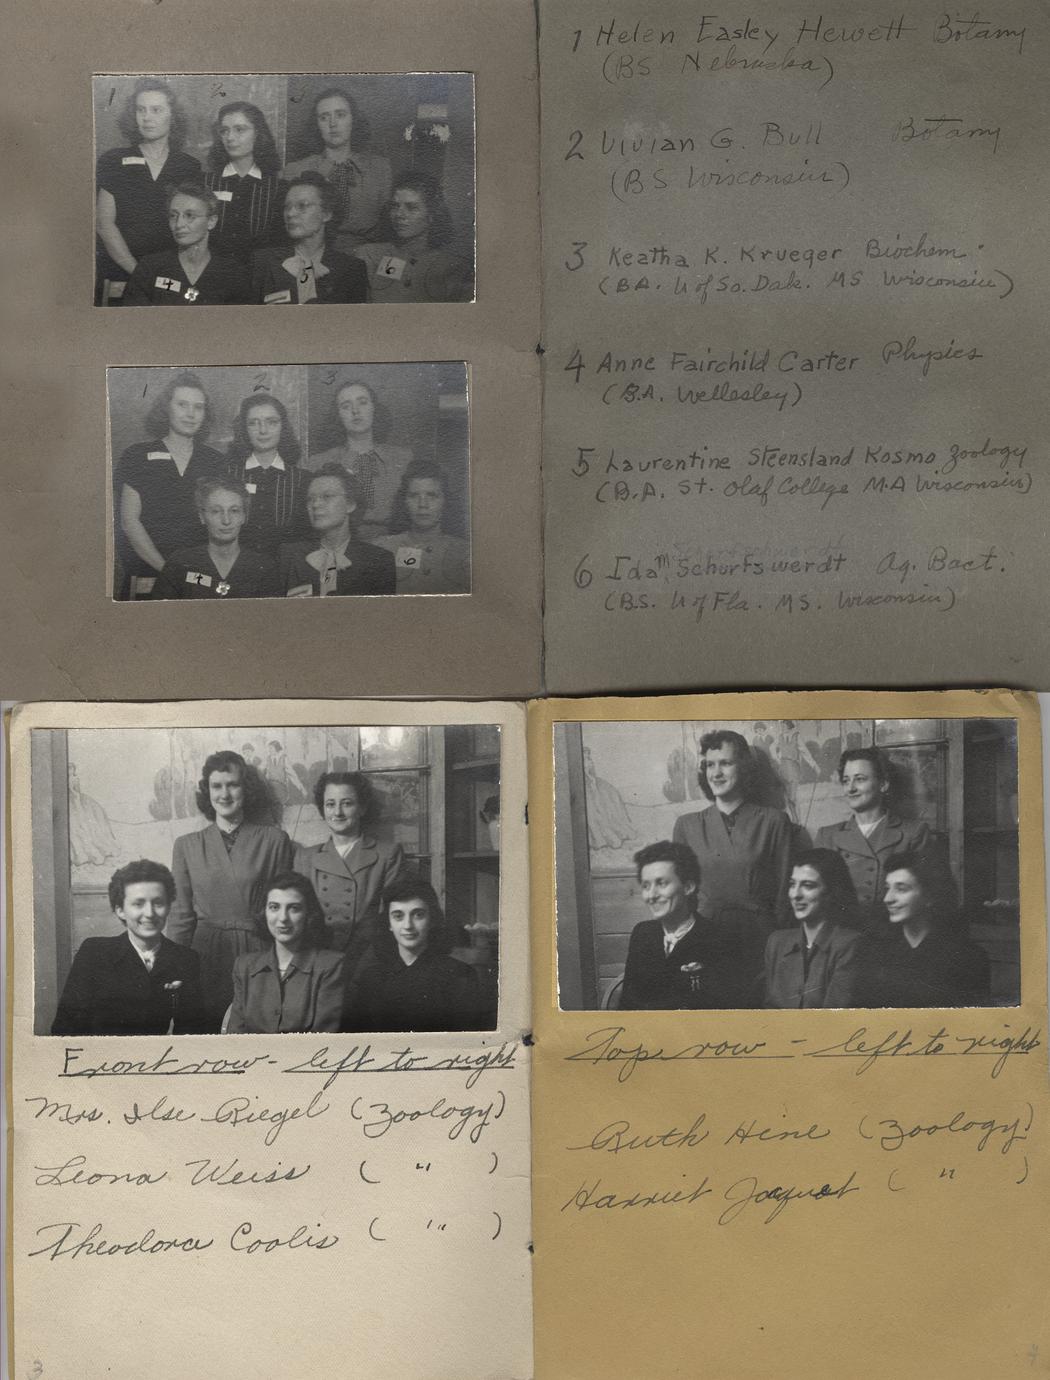 1 2 3
4 5 6
1 2 3
4 5 6
1 Helen Easley Hewett Botany
(BS Nebraska)
2 Vivian G. Bull Botany
(BS Wisconsin)
3 Keatha K. Krueger Biochem.
(BA. U of So. Dak. MS Wisconsin)
4 Anne Fairchild Carter Physics
(B.A. Wellesley)
5 Laurentine Steensland Kosmo Zoology
(B.A. St. Olaf College M.A Wisconsin)
6 Ida M Schurfswerdt Ag. Bact.
(B.S. U of Fla. MS. Wisconsin)
Front row - left to right
Mrs. Ilse Riegel (Zoology)
Leona Weiss ( " )
Theodora Coolis ( " )
3
Top row - left to right
Ruth Hine (Zoology)
Harriet Jaquet ( " )
4